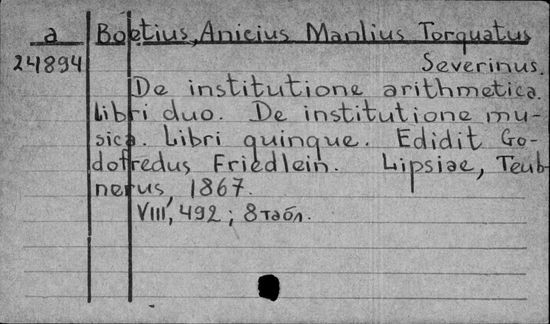 a Boetius, Anicius Manlius Torquatus
241894 Severinus.
De institutione arithmetica.
Libri duo. De institutione mu-
sica. Libri quinque. Edidit Go-
dofredus Friedlein. Lipsiae, Teub-
nerus, 1867.
VIII, 492 ; 8 табл.